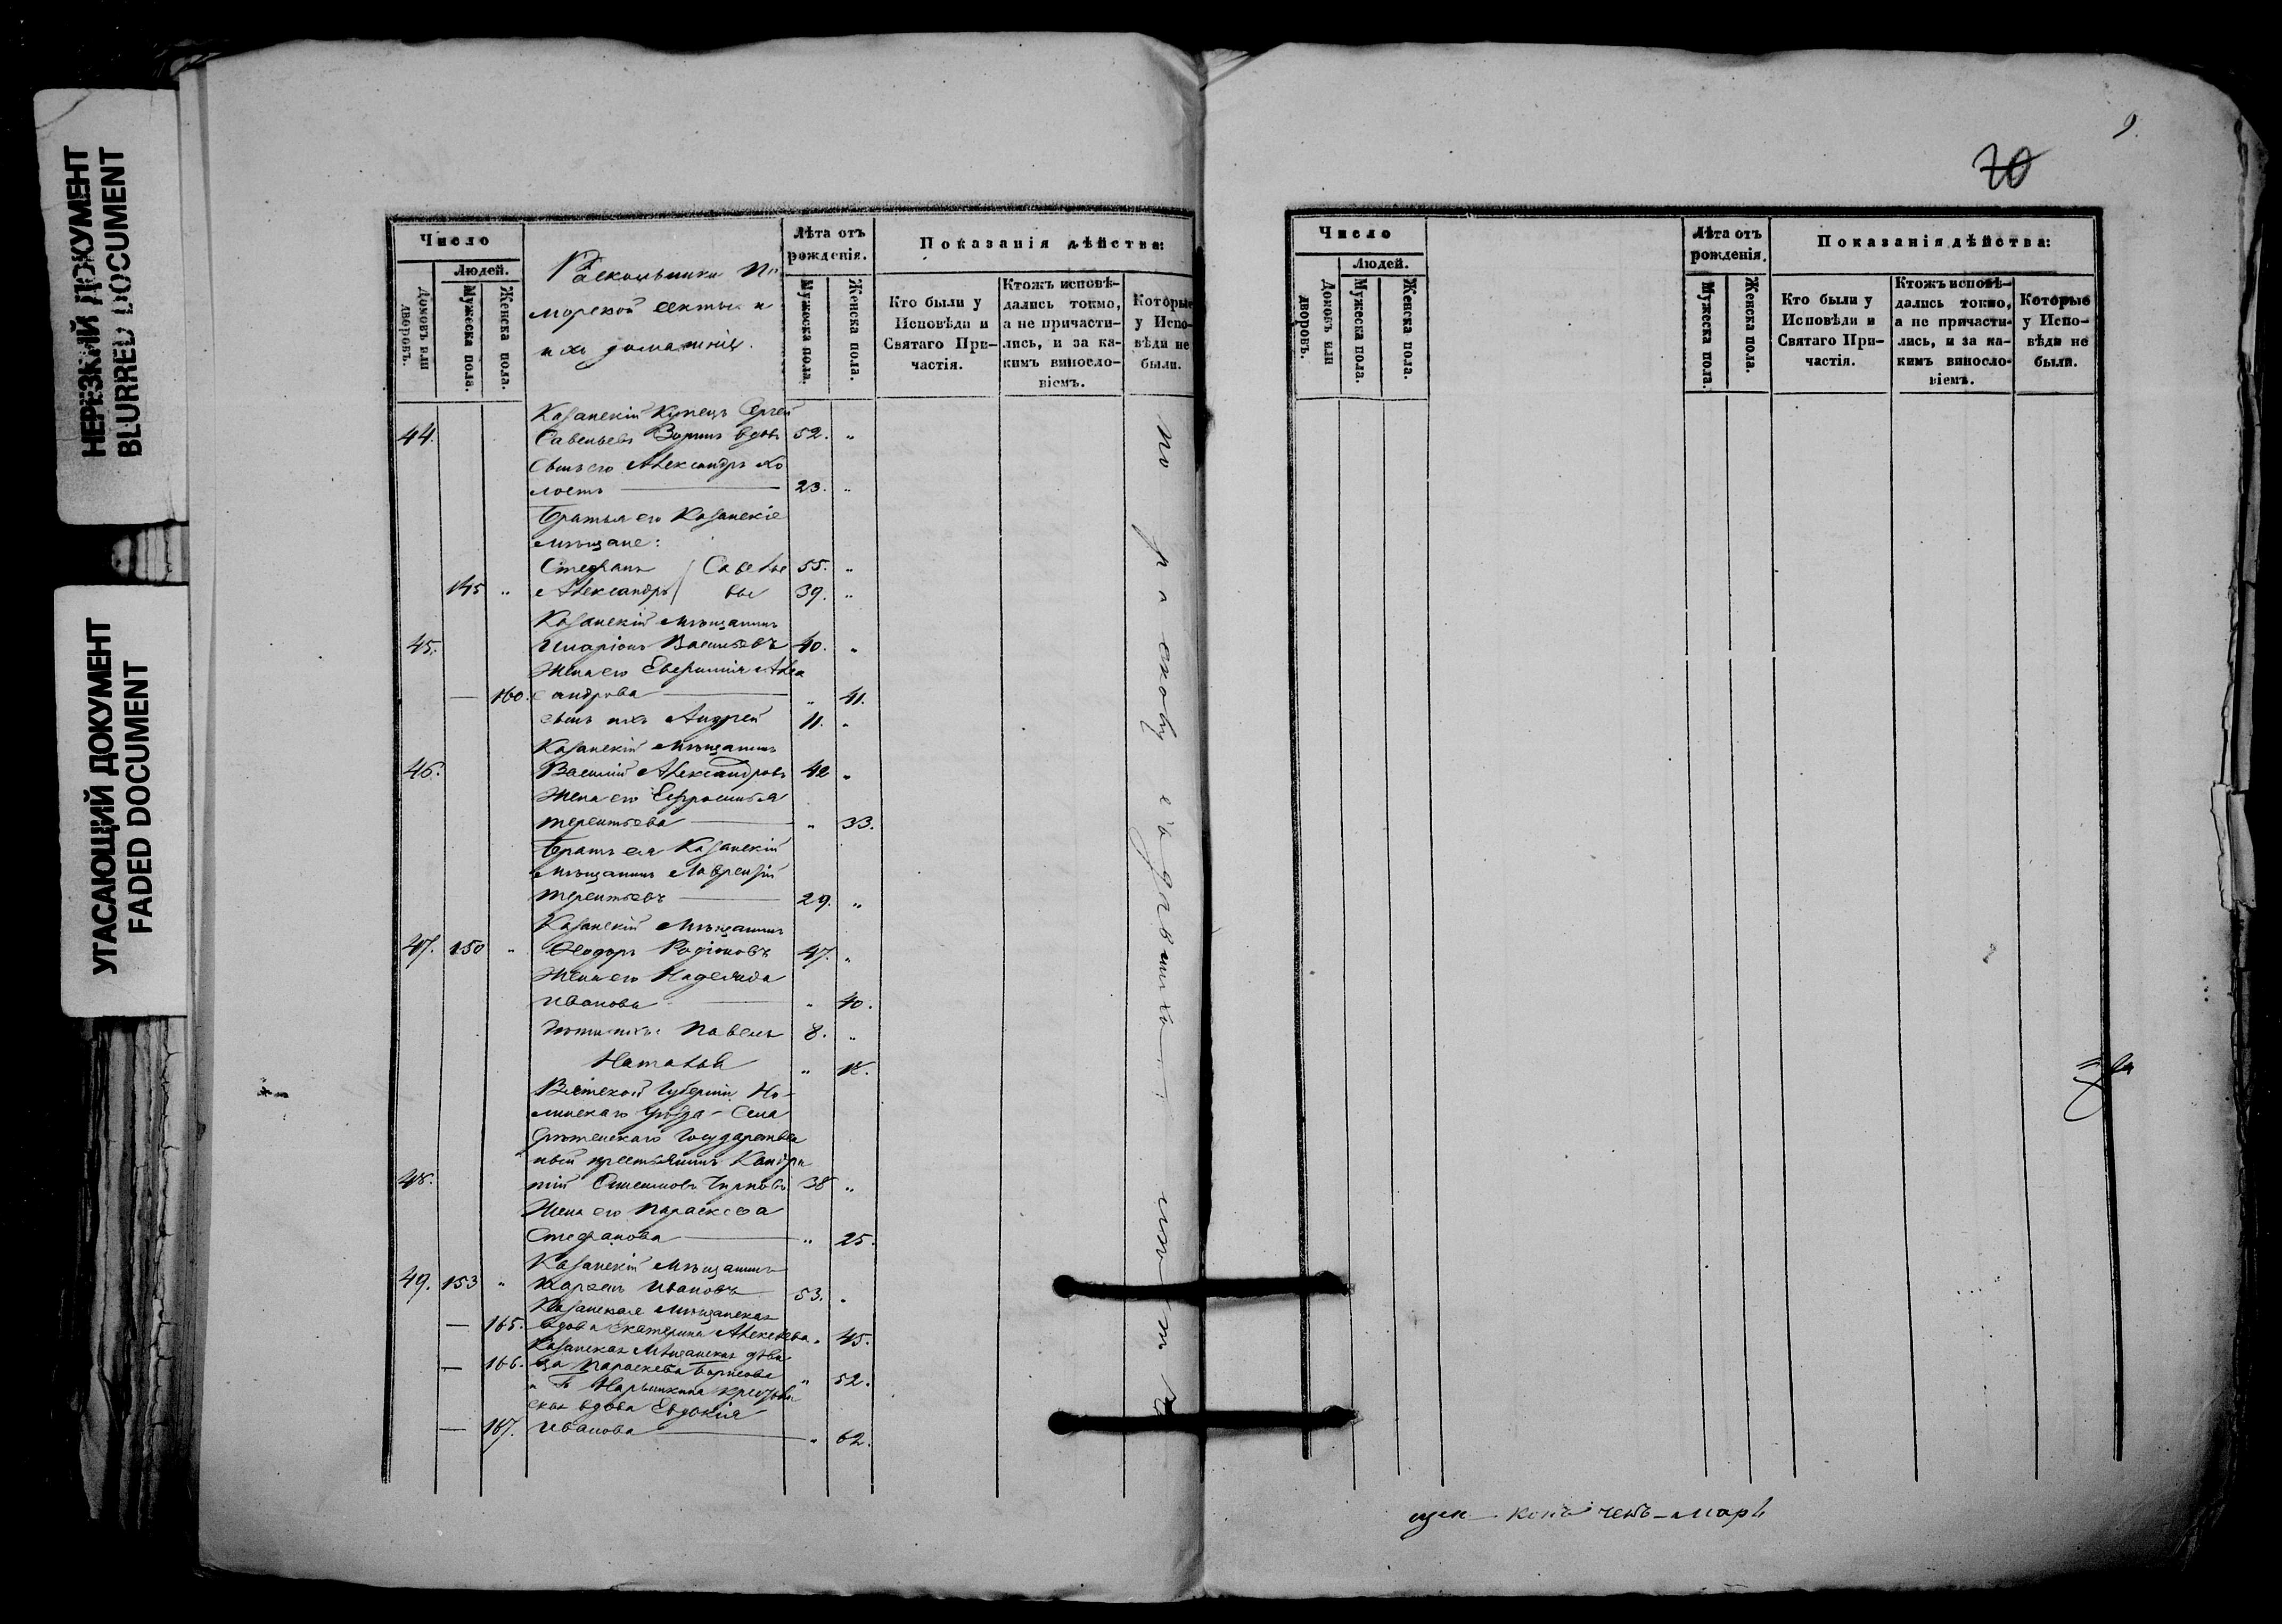 НЕРЕЗКИЙ ДОКУМЕНТ
BLURRED DOCUMENT
УГАСАЮЩИЙ ДОКУМЕНТ
FADED DOCUMENT
Число
Людей.
Домовъ или дворовъ.
Мужеска пола.
Женска пола.
Раскольники По
морской секты и
ихъ домашніе.
Лѣта отъ рожденія.
Мужеска пола.
Женска пола.
Показанія дѣйства:
Кто были у Исповѣди и Святаго Причастія.
Ктожъ исповѣ-
дались токмо,
а не причасти-
лись, и за ка-
кимъ винosло-
віемъ.
Которые
у Испо-
вѣди не
были.
Казанскій Купецъ Сергей
44. Савельевъ вдовъ 52. "
Сынъ его Александръ хо
лостъ 23. "
Братья его Казанскіе
мѣщане:
Стефанъ Савелье 55. "
145 " Александръ вы 39. "
Казанскій мѣщанинъ
45. Иларіонъ Васильевъ 40. "
Жена его Евфимія Алек
— 160. сандрова " 41.
Сынъ ихъ Андрей 11. "
Казанскій мѣщанинъ
46. Василій Александровъ 42 "
Жена его Ефросинья
Терентьева " 33.
Братъ ея Казанскій
мѣщанинъ Лаврентій
Терентьевъ 29. "
Казанскій мѣщанинъ
47. 150 " Ѳеодоръ Родіоновъ 47. "
Жена его Надежда
Иванова " 40.
Дѣти ихъ: Павелъ 8. "
Наталья "
Вятской Губерніи Но-
линскаго уѣзда Села
Срѣтенскаго Государствен
ный крестьянинъ Кондра
48. тій 38 "
Жена его Параскева
Стефанова " 25.
Казанскій мѣщанинъ
49. 153 " Карпъ Ивановъ 53. "
Казанская мѣщанская
— 165. вдова Екатерина Алексѣева " 45.
Казанская мѣщанская дѣви
— 166. ца Параскева Борисова " 52.
Г. Нарышкина крестьян
ская вдова Евдокія
— 167. Иванова " 62.
по расколу
9.
20
Число
Людей.
Домовъ или дворовъ.
Мужеска пола.
Женска пола.
Лѣта отъ рожденія.
Мужеска пола.
Женска пола.
Показанія дѣйства:
Кто были у Исповѣди и Святаго Причастія.
Ктожъ исповѣ-
дались токмо,
а не причасти-
лись, и за ка-
кимъ винosло-
віемъ.
Которые
у Испо-
вѣди не
были.